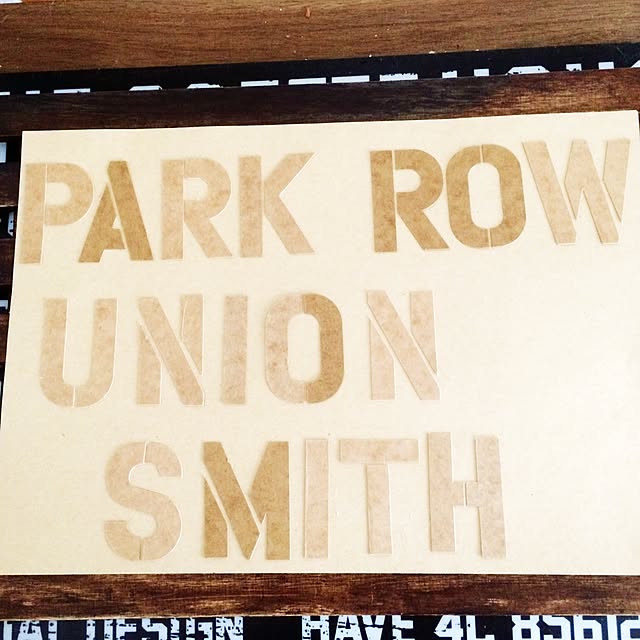 PARK ROW
UNION
SMITH
DESIGN HAVE 4L 85616